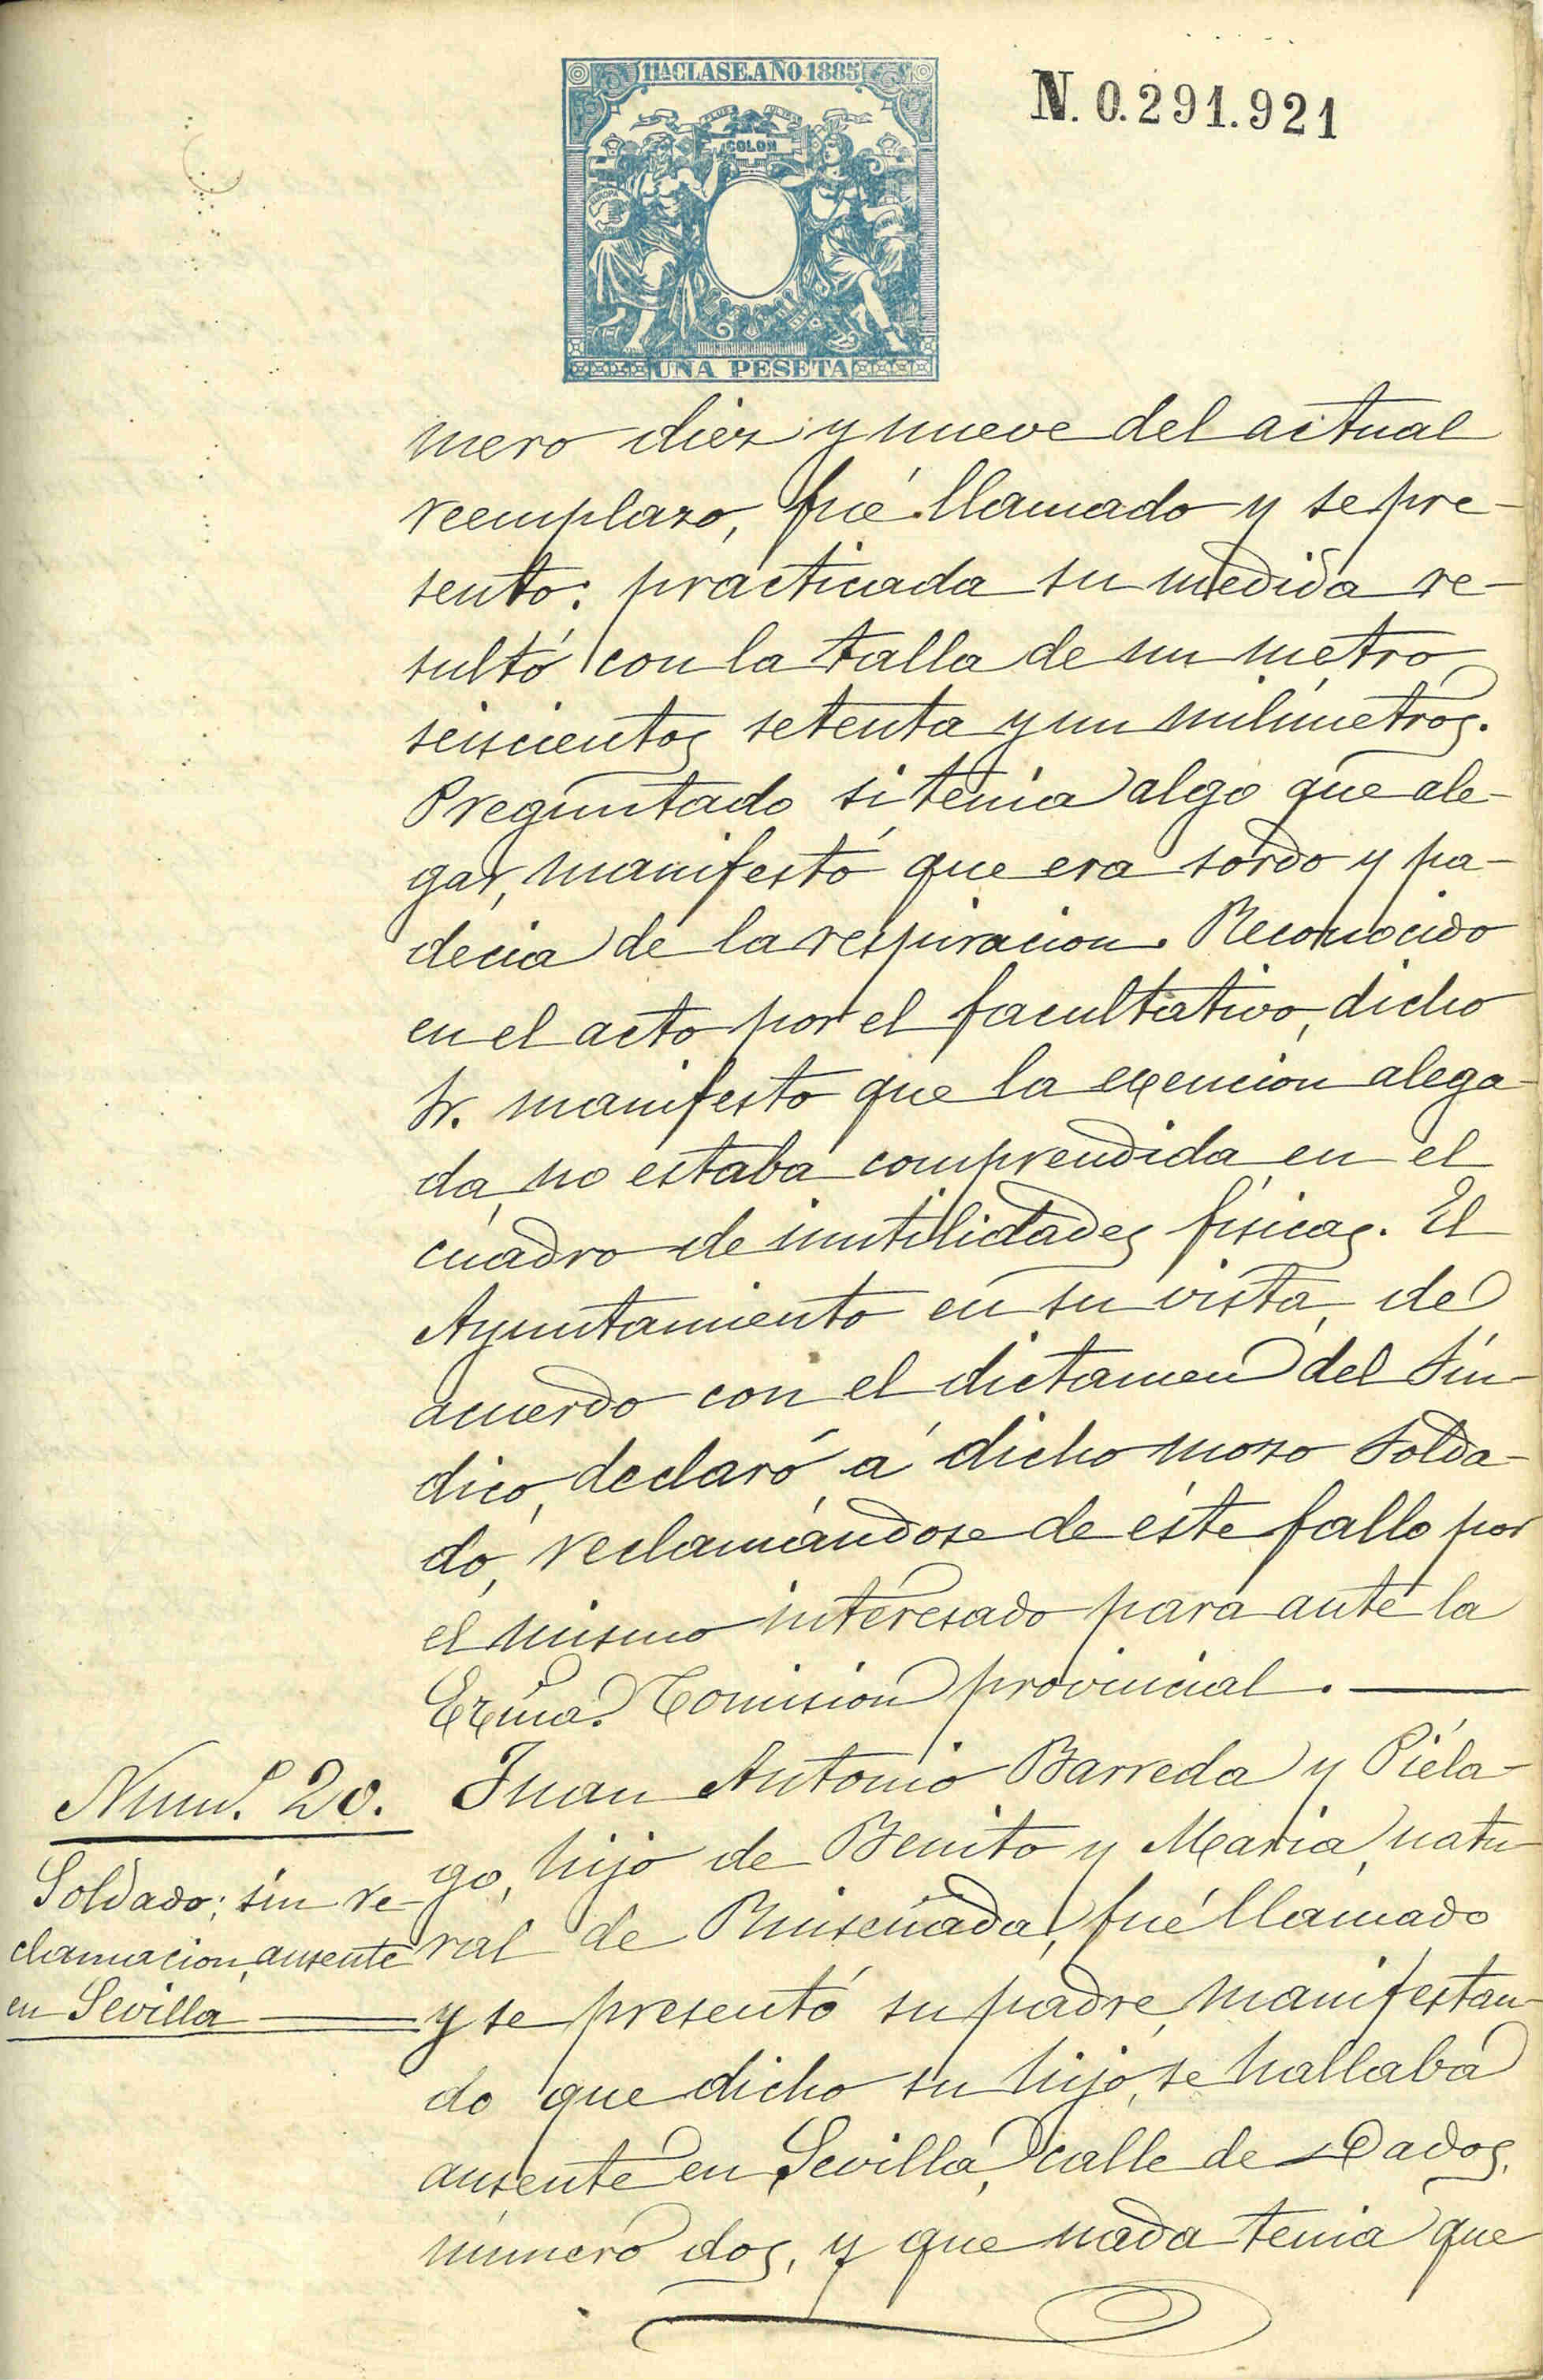 11ª CLASE. AÑO 1885
PLUS ULTRA
COLON
EUROPA
UNA PESETA
N. 0.291.921
mero diez y nueve del actual
reemplazo, fué llamado y se pre-
sento: practicada su medida re-
sultó con la talla de un metro
seiscientos setenta y un milimetros.
Preguntado si tenia algo que ale-
gar, manifestó que era sordo y pa-
decia de la respiracion. Reconocido
en el acto por el facultativo, dicho
Sr. manifesto que la exencion alega-
da, no estaba comprendida en el
cuadro de inutilidades fisicas. El
Ayuntamiento en su vista, de
acuerdo con el dictamen del Sin-
dico, declaró á dicho mozo Solda-
do, reclamándose de éste fallo por
el mismo interesado para ante la
Exma. Comision provincial.
Num. 20.
Soldado; sin re-
clamacion, ausente
en Sevilla
Juan Antonio Barreda y Piéla-
go, hijo de Benito y Maria, natu-
ral de Ruiseñada, fué llamado
y se presentó su padre, manifestan-
do que dicho su hijo, se hallaba
ausente en Sevilla, calle de Dados,
número dos, y que nada tenia que